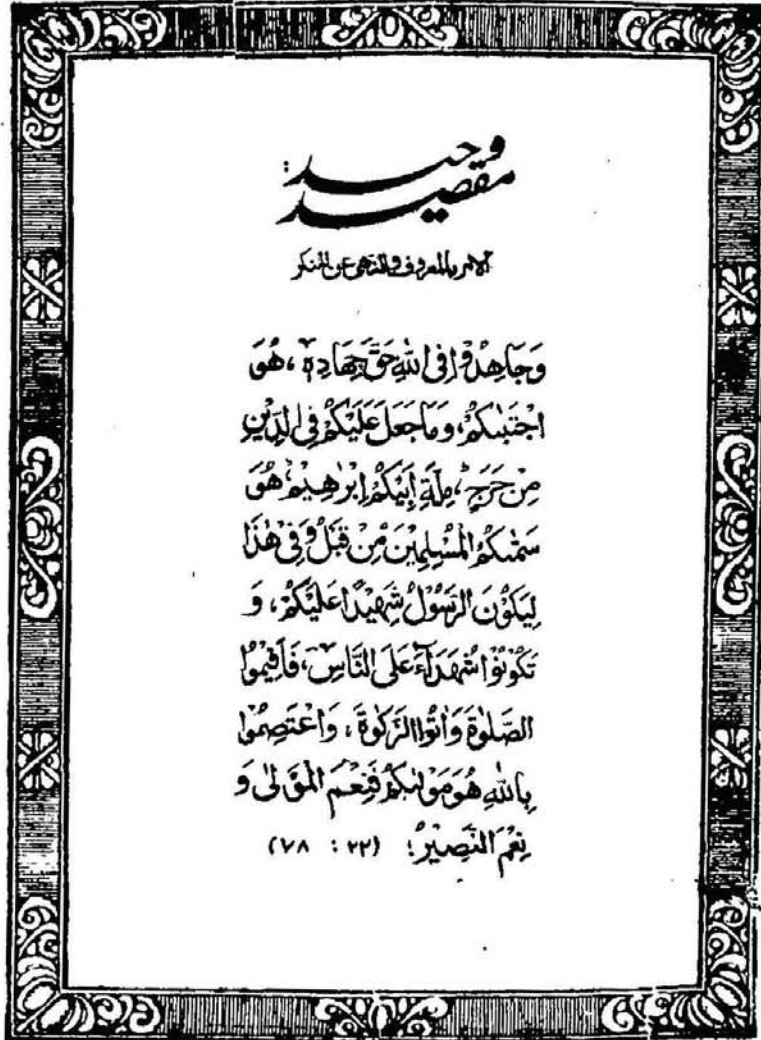 مقصد وحید:
الامر بالمعروف والنهی عن المنکر
وَجَاهِدُوْا فِی اللّٰهِ حَقَّ جِهَادِهٖ، هُوَ
اجْتَبٰىكُمْ، وَمَا جَعَلَ عَلَیْكُمْ فِی الدِّیْنِ
مِنْ حَرَجٍ ؕ، مِلَّةَ اَبِیْكُمْ اِبْرٰهِیْمَ، هُوَ
سَمّٰىكُمُ الْمُسْلِمِیْنَ مِنْ قَبْلُ وَفِیْ هٰذَا
لِیَكُوْنَ الرَّسُوْلُ شَهِیْدًا عَلَیْكُمْ، وَ
تَكُوْنُوْا شُهَدَآءَ عَلَی النَّاسِ، فَاَقِیْمُوا
الصَّلٰوةَ وَاٰتُوا الزَّكٰوةَ، وَاعْتَصِمُوْا
بِاللّٰهِ هُوَ مَوْلٰىكُمْ فَنِعْمَ الْمَوْلٰی وَ
نِعْمَ النَّصِیْرُ! (۲۲ : ۷۸)